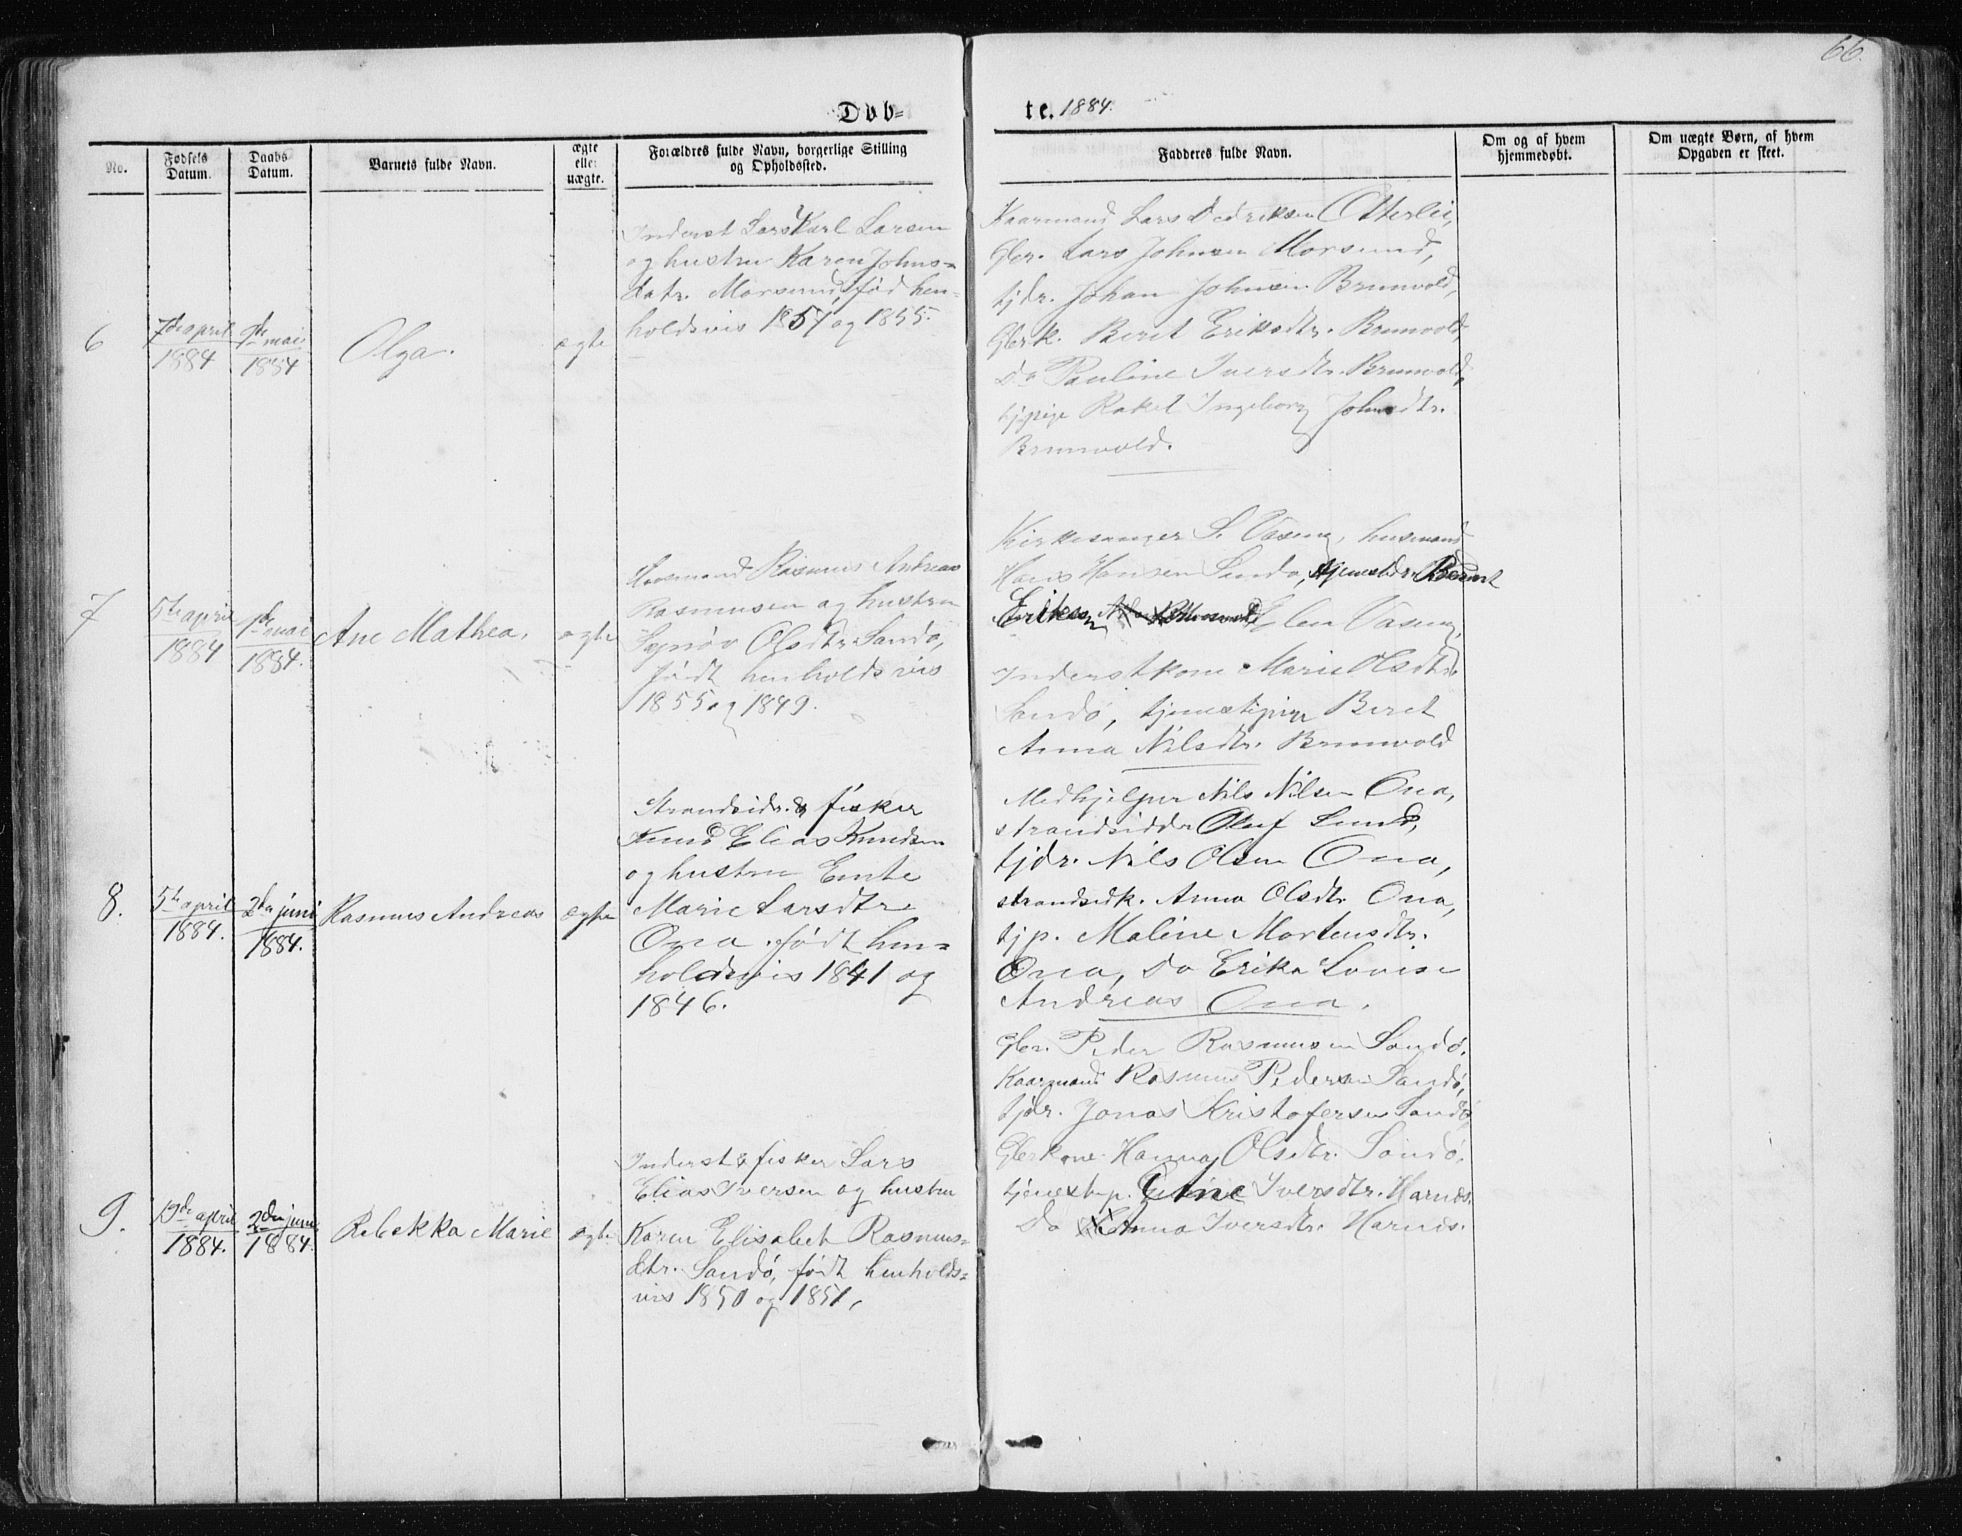 66.
Døb=
te. 1884.
No.
Fødsels
Datum.
Daabs
Datum.
Barnets fulde Navn.
ægte
eller
uægte.
Forældres fulde Navn, borgerlige Stilling
og Opholdssted.
Fadderes fulde Navn.
Om og af hvem
hjemmedøbt.
Om uægte Børn, af hvem
Opgaven er skeet.
6
7de april
1884
1ste mai
1884
Olga.
ægte
Inderst Lars Karl Larsen
og hustru Karen Johns=
datr. Morsund, fød hen=
holdsvis 1857 og 1855.
Kaarmand Lars Didriksen Otterlei,
Gbr. Lars Johnsen Morsund,
tjdr. Johan Johnsen Brunvold,
Gbrk. Beret Eriksdtr. Brunvold,
Do Pauline Iversdtr. Brunvold,
tjpige Rakel Ingeborg Johnsdtr.
Brunvold.
7
5te april
1884
1ste mai
1884.
Ane Mathea.
ægte
Huusmand Rasmus Andreas
Rasmusen og hustru
Synøv Olsdtr. Sandø,
født henholdsvis
1855 og 1849.
Kirkesanger S. Vaseng, husmand
Hans Hansen Sandø, tjenestedr. Berent
Eriksen Elen Vaseng,
Inderstkone Marie Olsdtr.
Sandø, tjenestepige Beret
Anna Nilsdtr. Brunvold
8.
5te april
1884.
2den juni
1884.
Rasmus Andreas
ægte
Strandsidr. & fisker
Knud Elias Knudsen
og hustru Ente
Marie Larsdtr.
Ona, født hen=
holdsvis 1841 og
1846.
Medhjelper Nils Nilsen Ona,
strandsidder Oluf Lund,
tjdr. Nils Olsen Ona,
strandsidk. Anna Olsdtr. Ona,
tjp. Maline Mortensdtr.
Ona, Do Erika Lovise
Andreas Ona.
9.
19de april
1884.
2den juni
1884.
Rebekka Marie
ægte
Inderst & fisker Lars
Elias Iversen og hustru
Karen Elisabet Rasmus=
dtr. Sandø, født henholds=
vis 1850 og 1851,
Gbr. Peder Rasmusen Sandø,
Kaarmand Rasmus Pedersen Sandø,
tjdr. Jonas Kristofersen Sandø,
Gbrkone Hanna Olsdtr. Sandø,
tjenestep. Eline Iversdtr. Harnes.
Do Anna Iversdtr. Harnes.